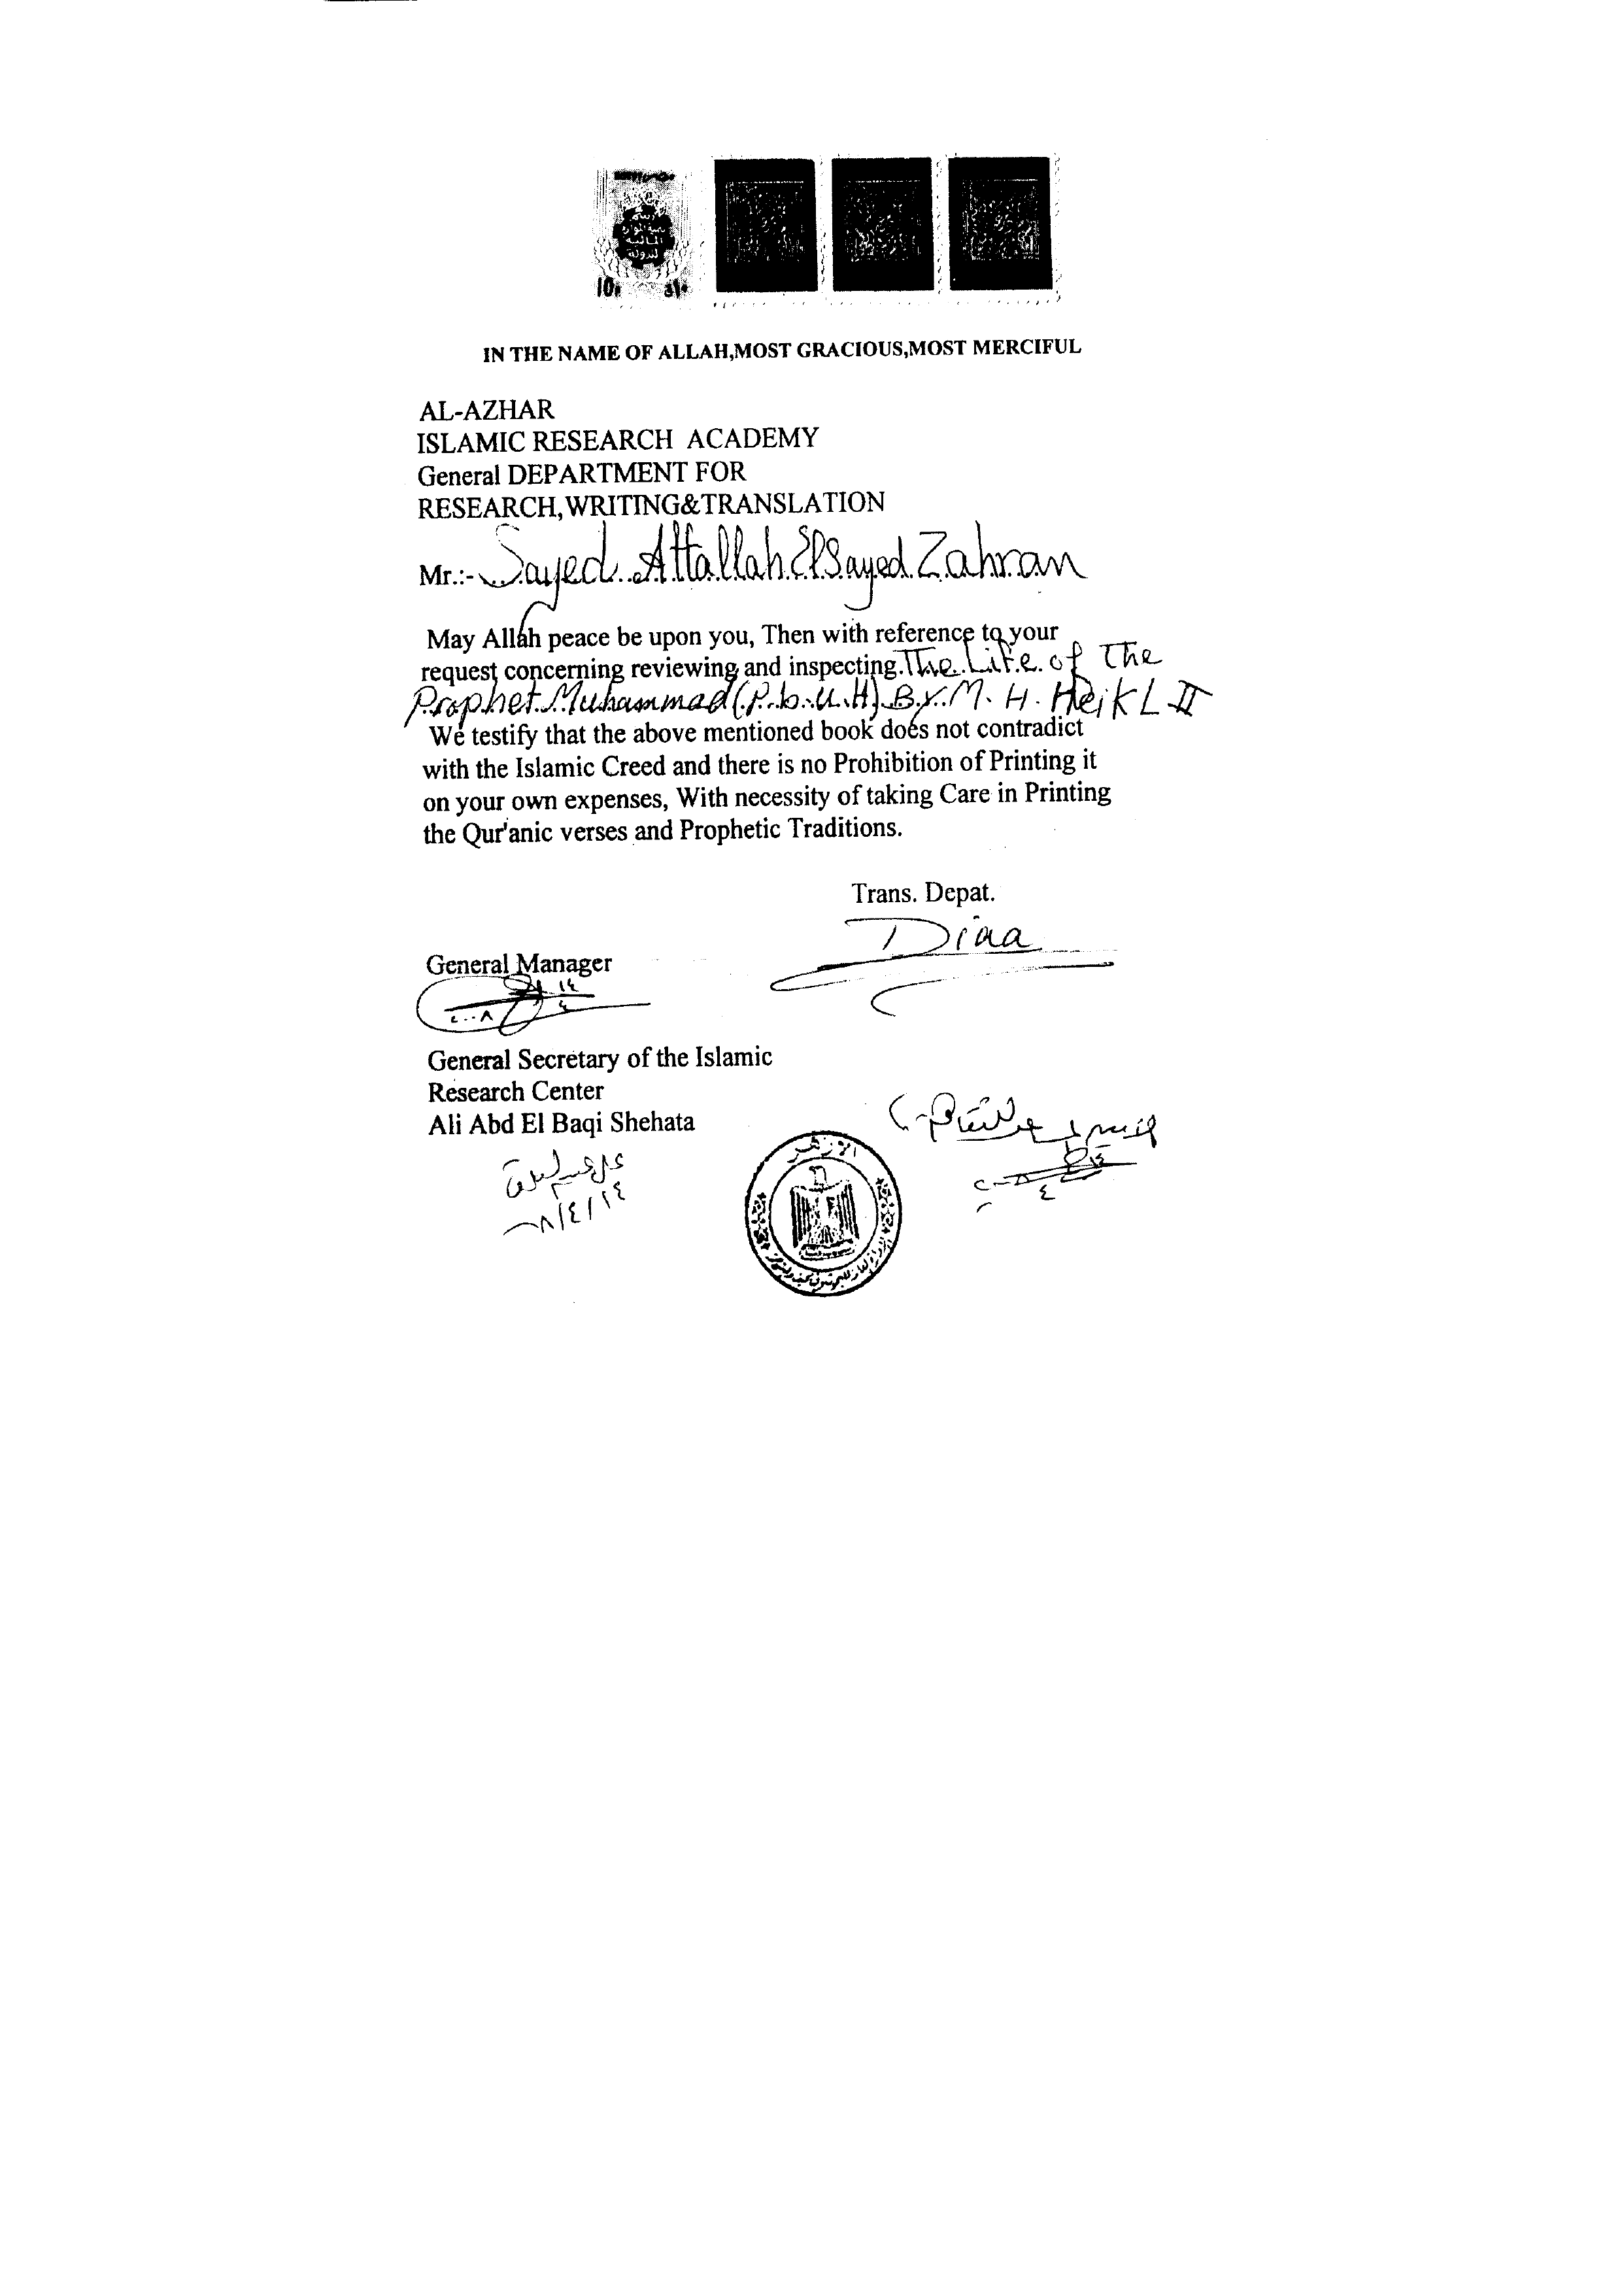 رسم
تنمية الموارد
المالية
للدولة
IN THE NAME OF ALLAH,MOST GRACIOUS,MOST MERCIFUL
AL-AZHAR
ISLAMIC RESEARCH ACADEMY
General DEPARTMENT FOR
RESEARCH,WRITING&TRANSLATION
Mr.:- Sayed Attallah ElSayed Zahran
May Allah peace be upon you, Then with reference to your
request concerning reviewing and inspecting The Life of The
Prophet Muhammad (P.b.u.H) By M. H. Heikl II
We testify that the above mentioned book does not contradict
with the Islamic Creed and there is no Prohibition of Printing it
on your own expenses, With necessity of taking Care in Printing
the Qur'anic verses and Prophetic Traditions.
Trans. Depat.
Diaa
General Manager
١٤
٤
٢٠٠٨
General Secretary of the Islamic
Research Center
Ali Abd El Baqi Shehata
علي عبد الباقي
١٤/٤/٢٠٠٨
الأزهر